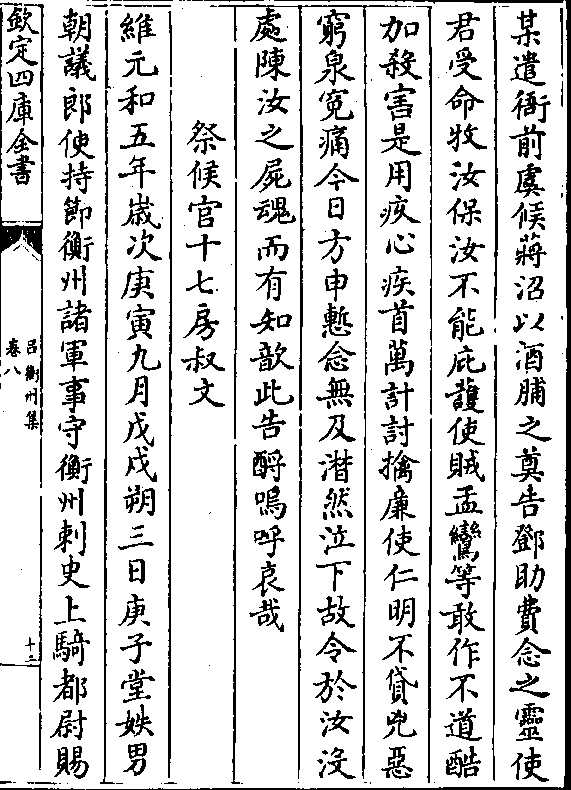 某遣衙前虞候蔣沼以酒脯之奠告鄧助費念之靈使
君受命牧汝保汝不能庇護使賊孟鸞等敢作不道酷
加殺害是用疚心疾首萬計討擒廉使仁明不貸兇惡
窮泉寃痛今日方申慙念無及潸然泣下故令於汝沒
處陳汝之屍魂而有知歆此告酹嗚呼哀哉
祭候官十七房叔文
維元和五年嵗次庚寅九月戊戌朔三日庚子堂姪男
朝議郎使持節衡州諸軍事守衡州刺史上騎都尉賜
欽定四庫全書
吕衡州集
卷八
十二